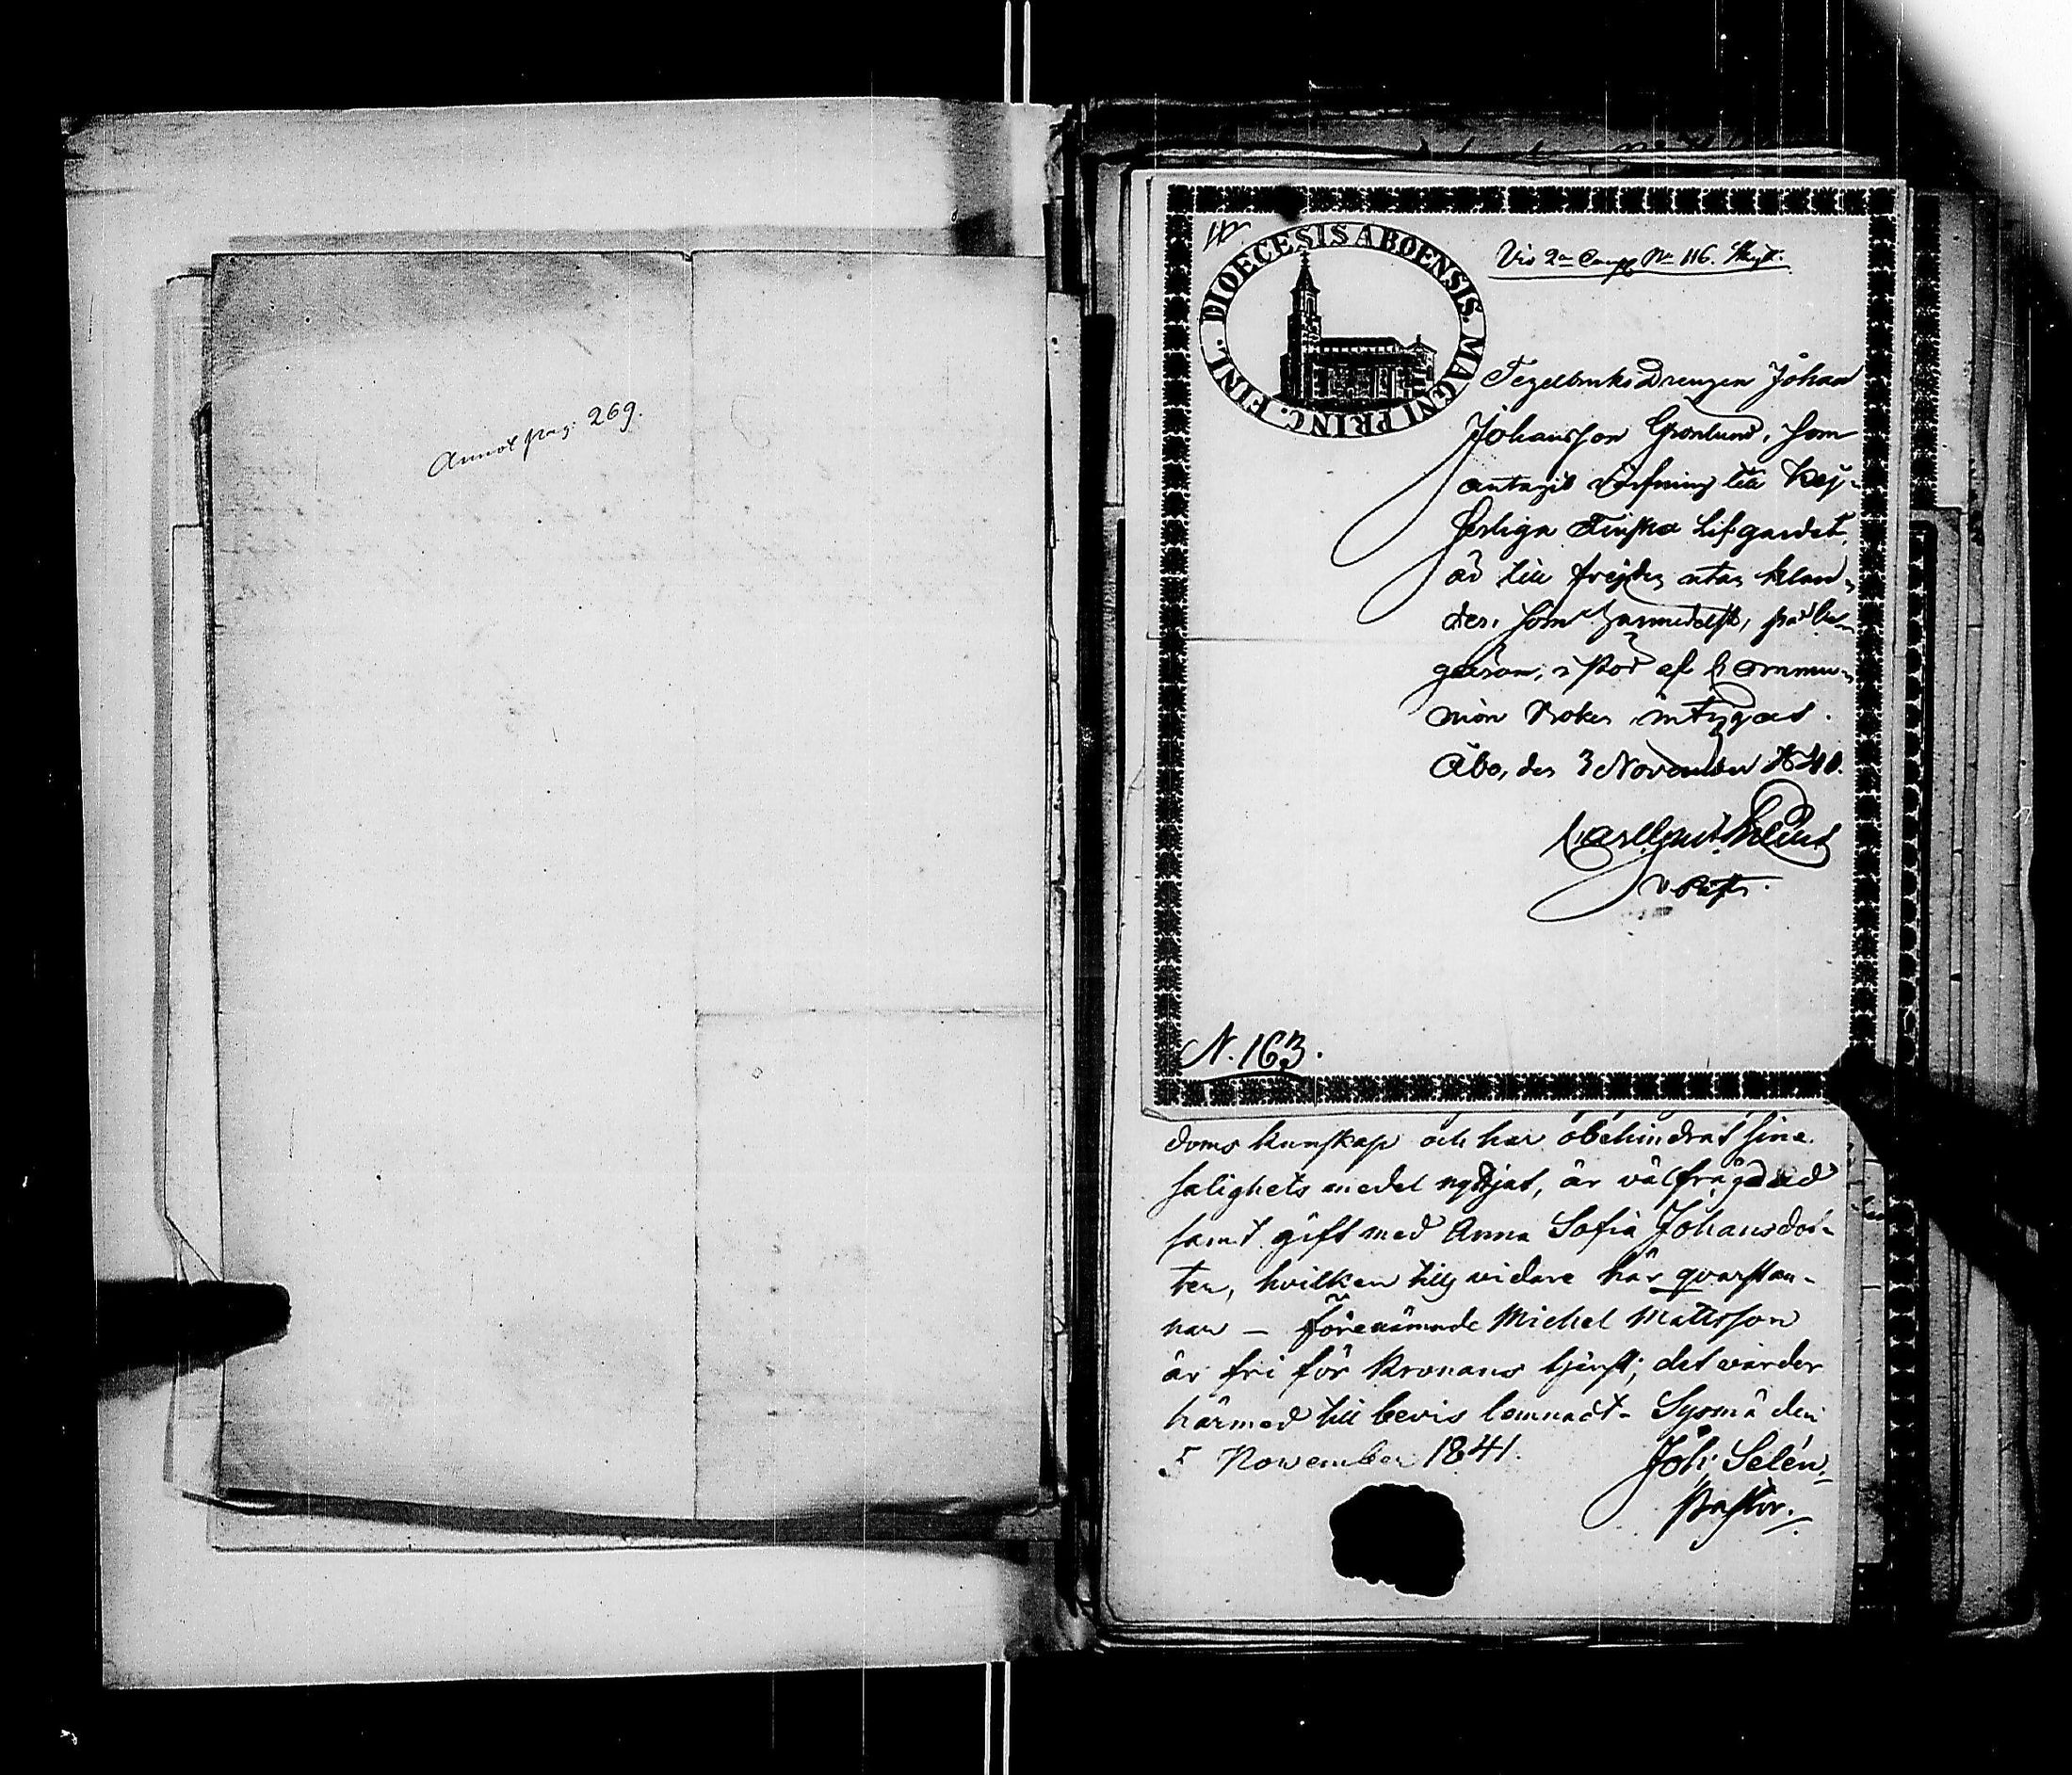 Annot pag: 269.
DIOECESIS ABOENSIS. MAGNI PRINC. FINL.
Vis 2a Comp No 116.
Tegelbruks Drengen Johan
Johansson Grönlund, som
antagit värfning till Kej-
serliga Finska Lifgardet,
är till frejden utan klan-
der, som härmedelst, på be-
gäran, i stöd af Commu-
nion Boken intygas.
Åbo, den 3 November 1840.
v. Past.
N. 163.
doms kunskap och har obehindrat sine
salighets medel nyttjat, är välfrägdad
samt gift med Anna Sofia Johansdot-
ter, hvilken tills vidare här qvarstan-
nar – förenämnde Michel Mattsson
är fri för Kronans tjenst; det varder
härmed till bevis lemnadt. Sysmä den
5 November 1841.
Joh: Selén,
Pastor.